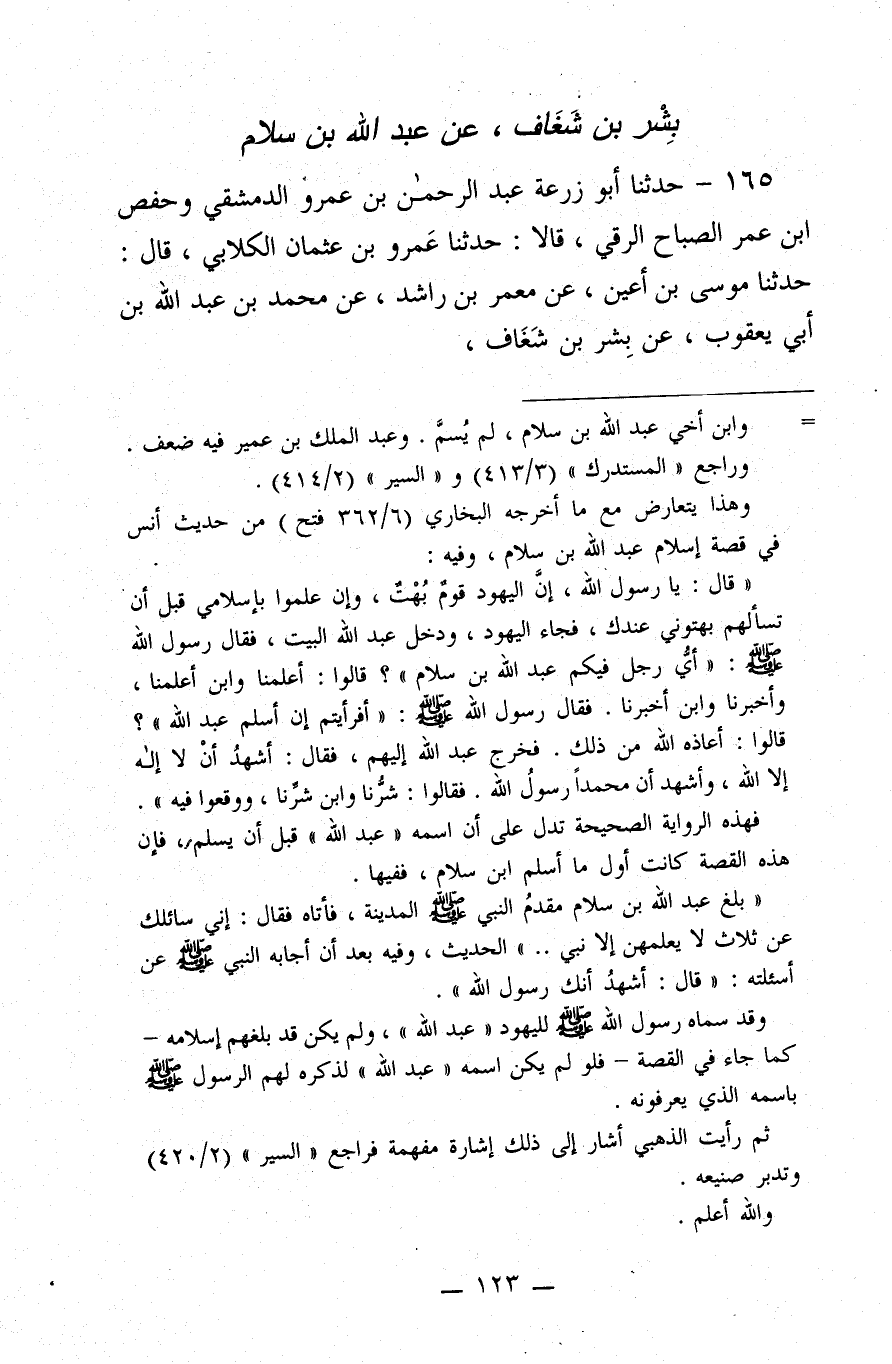 بِشْر بن شَغَاف ، عن عبد الله بن سلام
١٦٥ – حدثنا أبو زرعة عبد الرحمـٰن بن عمرو الدمشقي وحفص
ابن عمر الصباح الرقي ، قالا : حدثنا عَمرو بن عثمان الكلابي ، قال :
حدثنا موسى بن أعين ، عن معمر بن راشد ، عن محمد بن عبد الله بن
أبي يعقوب ، عن بِشر بن شَغَاف ،
= وابن أخي عبد الله بن سلام ، لم يُسمَّ . وعبد الملك بن عمير فيه ضعف .
وراجع « المستدرك » (٤١٣/٣) و « السير » (٤١٤/٢) .
وهذا يتعارض مع ما أخرجه البخاري (٣٦٢/٦ فتح ) من حديث أنس
في قصة إسلام عبد الله بن سلام ، وفيه :
« قال : يا رسول الله ، إنَّ اليهود قومٌ بُهْتٌ ، وإن علموا بإسلامي قبل أن
تسألهم بهتوني عندك ، فجاء اليهود ، ودخل عبد الله البيت ، فقال رسول الله
ﷺ : « أيُّ رجل فيكم عبد الله بن سلام » ؟ قالوا : أعلمنا وابن أعلمنا ،
وأخبرنا وابن أخبرنا . فقال رسول الله ﷺ : « أفرأيتم إن أسلم عبد الله » ؟
قالوا : أعاذه الله من ذلك . فخرج عبد الله إليهم ، فقال : أشهدُ أنْ لا إلـٰه
إلا الله ، وأشهد أن محمداً رسولُ الله . فقالوا : شرُّنا وابن شرِّنا ، ووقعوا فيه » .
فهذه الرواية الصحيحة تدل على أن اسمه « عبد الله » قبل أن يسلم ، فإن
هذه القصة كانت أول ما أسلم ابن سلام ، ففيها .
« بلغ عبد الله بن سلام مقدمُ النبي ﷺ المدينة ، فأتاه فقال : إني سائلك
عن ثلاث لا يعلمهن إلا نبي .. » الحديث ، وفيه بعد أن أجابه النبي ﷺ عن
أسئلته : « قال : أشهدُ أنك رسول الله » .
وقد سماه رسول الله ﷺ لليهود « عبد الله » ، ولم يكن قد بلغهم إسلامه –
كما جاء في القصة – فلو لم يكن اسمه « عبد الله » لذكره لهم الرسول ﷺ
باسمه الذي يعرفونه .
ثم رأيت الذهبي أشار إلى ذلك إشارة مفهمة فراجع « السير » (٤٢٠/٢)
وتدبر صنيعه .
والله أعلم .
– ١٢٣ –